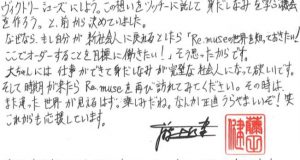 ヴィクトリーシューズにしよう。この想いをソッチーに試して 身だしなみを学ぶ機会
を作ろう。と、前から決めていました。
なぜなら、もし自分が新社会人に戻れるとしたら「Re.museの世界を知っておきたい!
ここでオーダーすることを目標に働きたい!」そう思ったからです。
大ちゃんには 仕事ができて身だしなみが完璧な社会人になって欲しいです。
そして時期が来たら Re.museを再び訪れてみてください。その時は、
また違った世界が見えるはず。楽しみだね。なんか正直うらやましいぞ!笑
これからも応援しています。